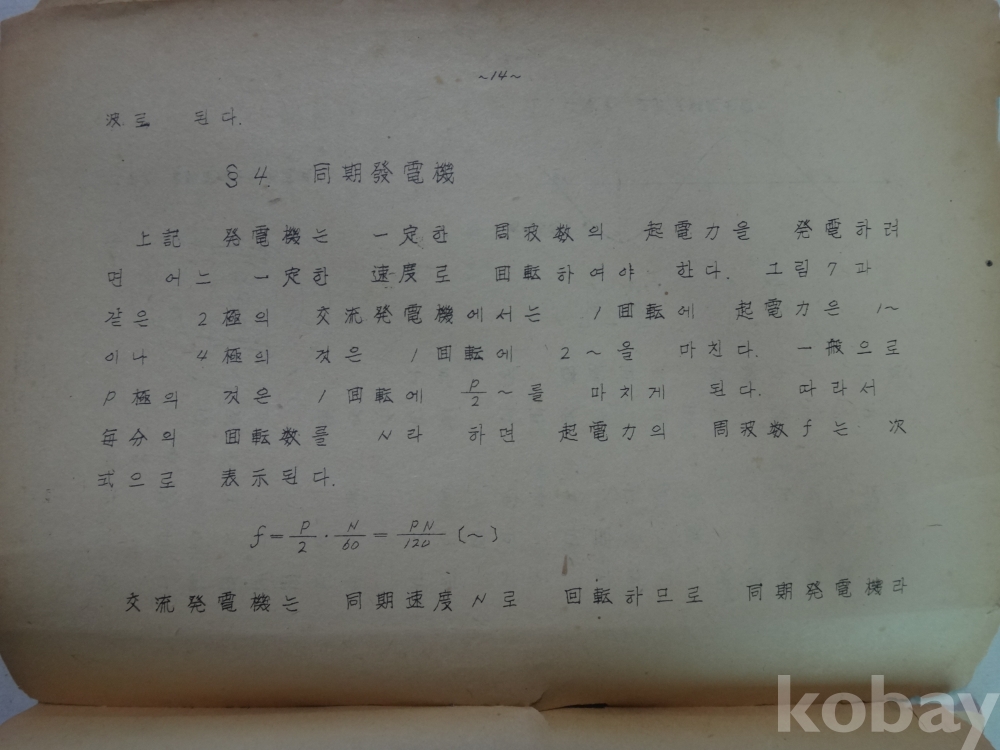 ~14~
波로 된다.
§4. 同期發電機
上記 発電機는 一定한 周波数의 起電力을 発電하려
면 어느 一定한 速度로 回転하여야 한다. 그림7과
같은 2極의 交流発電機에서는 1回転에 起電力은 1~
이나 4極의 것은 1回転에 2~을 마친다. 一般으로
P極의 것은 1回転에 P/2~를 마치게 된다. 따라서
每分의 回転数를 N라 하면 起電力의 周波数f는 次
式으로 表示된다.
f=P/2·N/60=PN/120 [~]
交流発電機는 同期速度N로 回転하므로 同期発電機라
kobay